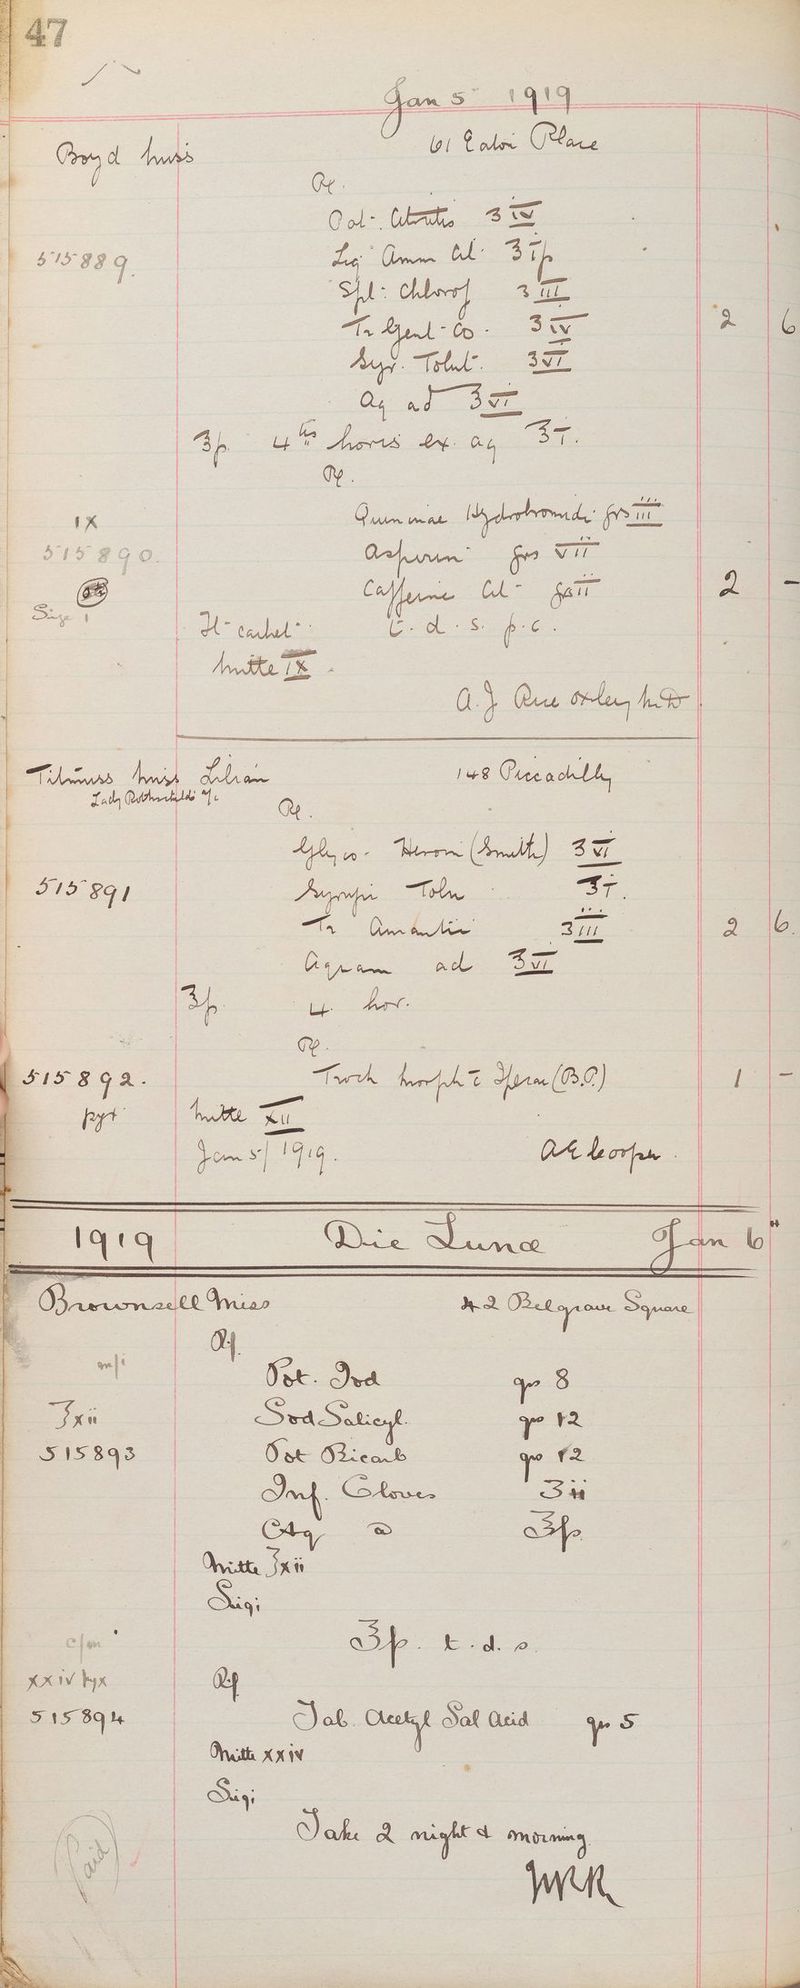 47
Jan 5 1919
Boyd Miss 61 Eaton Place
Rx.
Pot. Citratis ʒiv
515889. Liq Amm Cit ℥ip
Spt: Chlorof ʒiii
Tr Gent Co. ʒiv 2 6
Syr. Tolut. ʒvi
Aq ad ℥vi
℥p 4tis horis ex aq ℥i.
Rx.
IX Quininae Hydrobromidi grs iii
515890. Aspirin grs vii
Caffeine Cit grs ii 2 -
Size 1 Ft cachet t.d.s. p.c.
Mitte IX
A. J. Rice Oxley M.D.
Titmuss Miss Lilian 148 Piccadilly
Lady Rothschild's a/c
Rx.
Glyco- Heroin (Smith) ʒvi
515891 Syrupi Tolu ℥i.
Tr Aurantii ʒiii 2 6.
Aquam ad ℥vi
℥p 4 hor.
Rx.
515892. Troch Morph c̄ Ipecac (B.P.) 1 -
pyx Mitte xii
Jan 5/1919. A E Cooper.
1919 Die Lunæ Jan 6"
Brownsell Miss 42 Belgrave Square
Rx
m/i Pot. Iod grs 8
℥xii Sod Salicyl. grs 12
515893 Pot Bicarb grs 12
Inf. Cloves ʒii
Aq a ℥p
Mitte ℥xii
Sig:
℥p. t.d.s.
c/m
xxiv pyx Rx
515894 Tab. Acetyl Sal Acid grs 5
Mitte xxiv
Sig:
Take 2 night & morning.
Paid